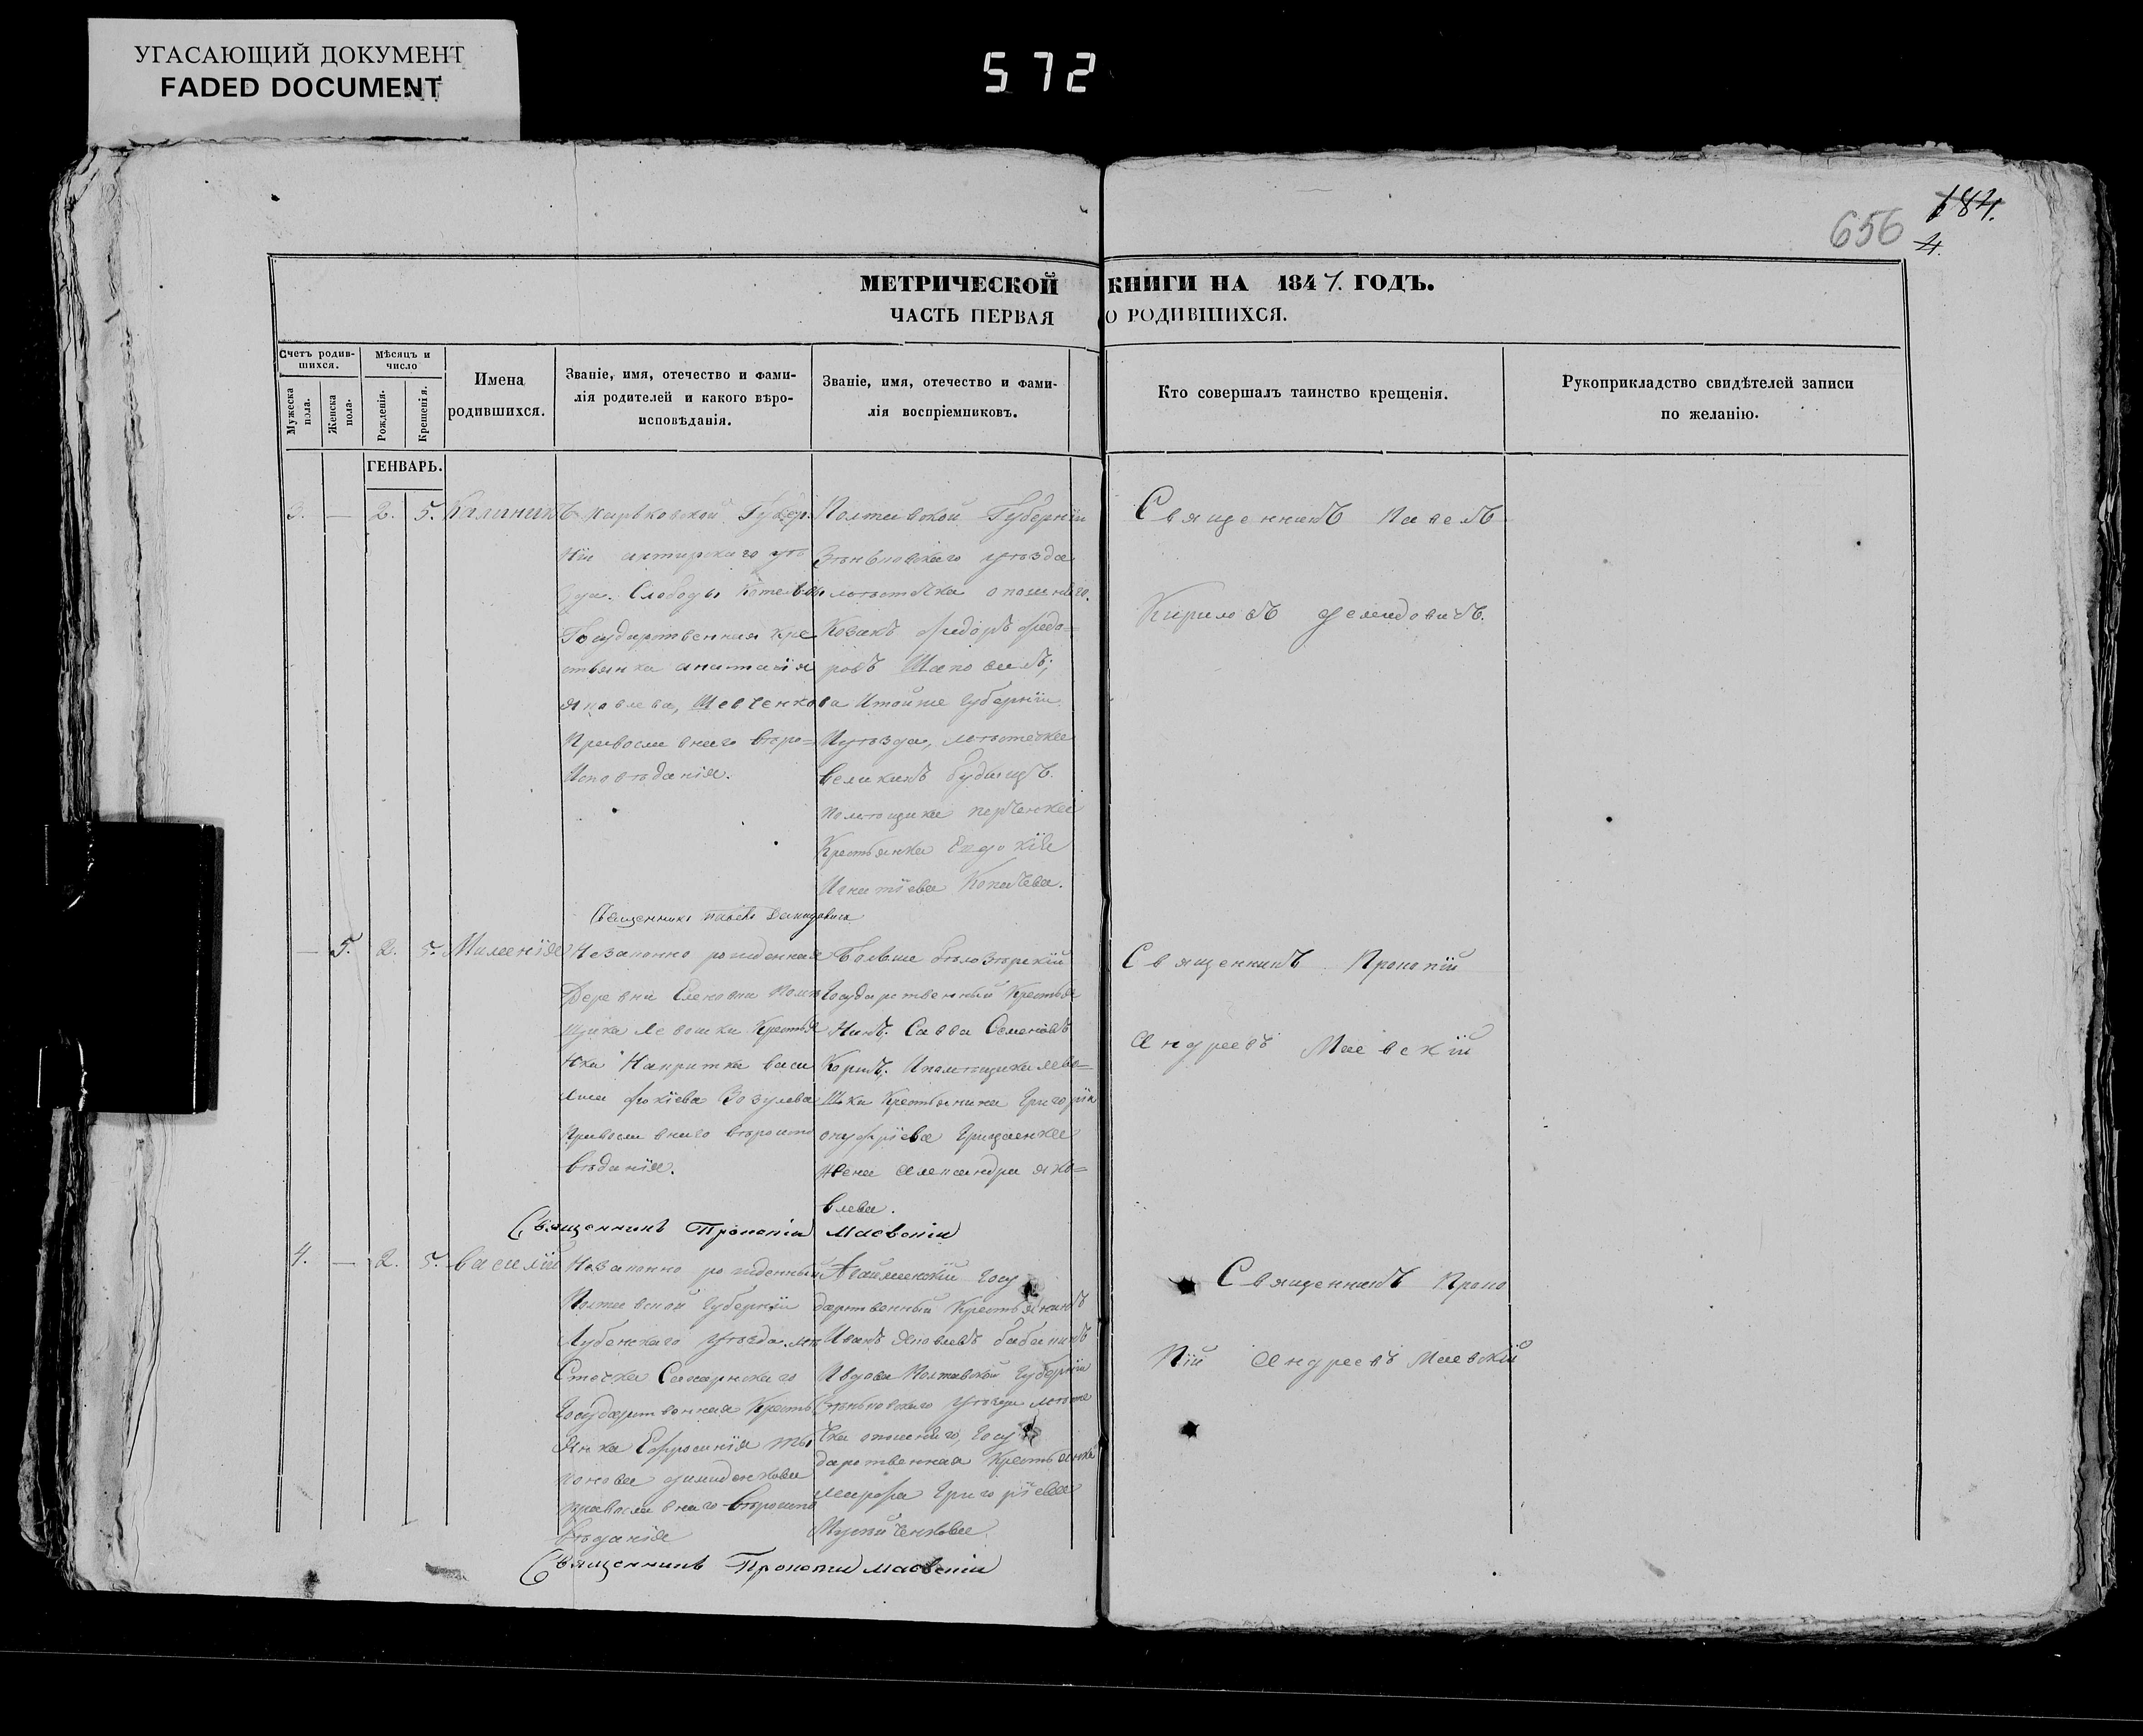 УГАСАЮЩИЙ ДОКУМЕНТ
FADED DOCUMENT
572
184.
656
4.
МЕТРИЧЕСКОЙ КНИГИ НА 1847. ГОДЪ.
ЧАСТЬ ПЕРВАЯ О РОДИВШИХСЯ.
Счетъ родившихся.
Мужеска пола.
Женска пола.
Мѣсяцъ и число
Рожденія.
Крещенія.
Имена родившихся.
Званіе, имя, отечество и фамилія родителей и какого вѣроисповѣданія.
Званіе, имя, отечество и фамилія воспріемниковъ.
Кто совершалъ таинство крещенія.
Рукоприкладство свидѣтелей записи по желанію.
ГЕНВАРЬ.
3. — 2. 5. Калиникъ
Харьковской Губер.
ніи ахтирскаго уѣ
зда. Слободы Котельвы
Государственная кре
стьянка анатасія
яковлева, Шевченкова
Православнаго вѣро=
Исповѣданія.
Полтавской Губерніи
Зѣньковскаго уѣзда
мѣстѣчка опошняго.
Козакъ Федоръ Федо=
ровъ
Итойже губерніи
Иуѣзда, мѣстечка
великихъ будищъ.
помѣщика
Крестьянка Евдокія
Игнатіева
Священникъ Павелъ
Кириловъ Демидовичъ.
Священникъ Павелъ Демидовичъ
— 5. 2. 5. Миланія
Незаконно рожденная
Деревни Еленовки помѣ
щика Левошки Крестья
нка
Фокіева Возулева
Православнаго вѣроиспо
вѣданія.
больше бѣлозѣрскій
Государственный Крестья
нинъ. Савва Семеновъ
Коржъ. Ипомѣщика лево=
шки Крестьянина Григорія
онуфріева Грицаенка
жена александра яко=
влева.
Священникъ Прокопій
Андреевъ Маевскій
Священникъ Прокопій Маевскій
4. — 2. 5. василій
Незаконно рожденный
Полтавской губерніи
Лубенскаго уѣзда. мѣ
стечка Снѣтинскаго
Государственная Кресть
янка Ефросинія
Демиденкова
православнаго вѣроиспо
вѣданія
Агайманскій Госу
дарственный Крестьянинъ
Иванъ Яковлевъ бабанинъ
Ивдова Полтавской губерніи
Зѣньковскаго уѣзда мѣсте
чка опошняго, Госу
дарственная Крестьянка
марфа Григоріева
Мусийченкова.
Священникъ Проко
пій Андреевъ Маевскій
Священникъ Прокопій Маевскій